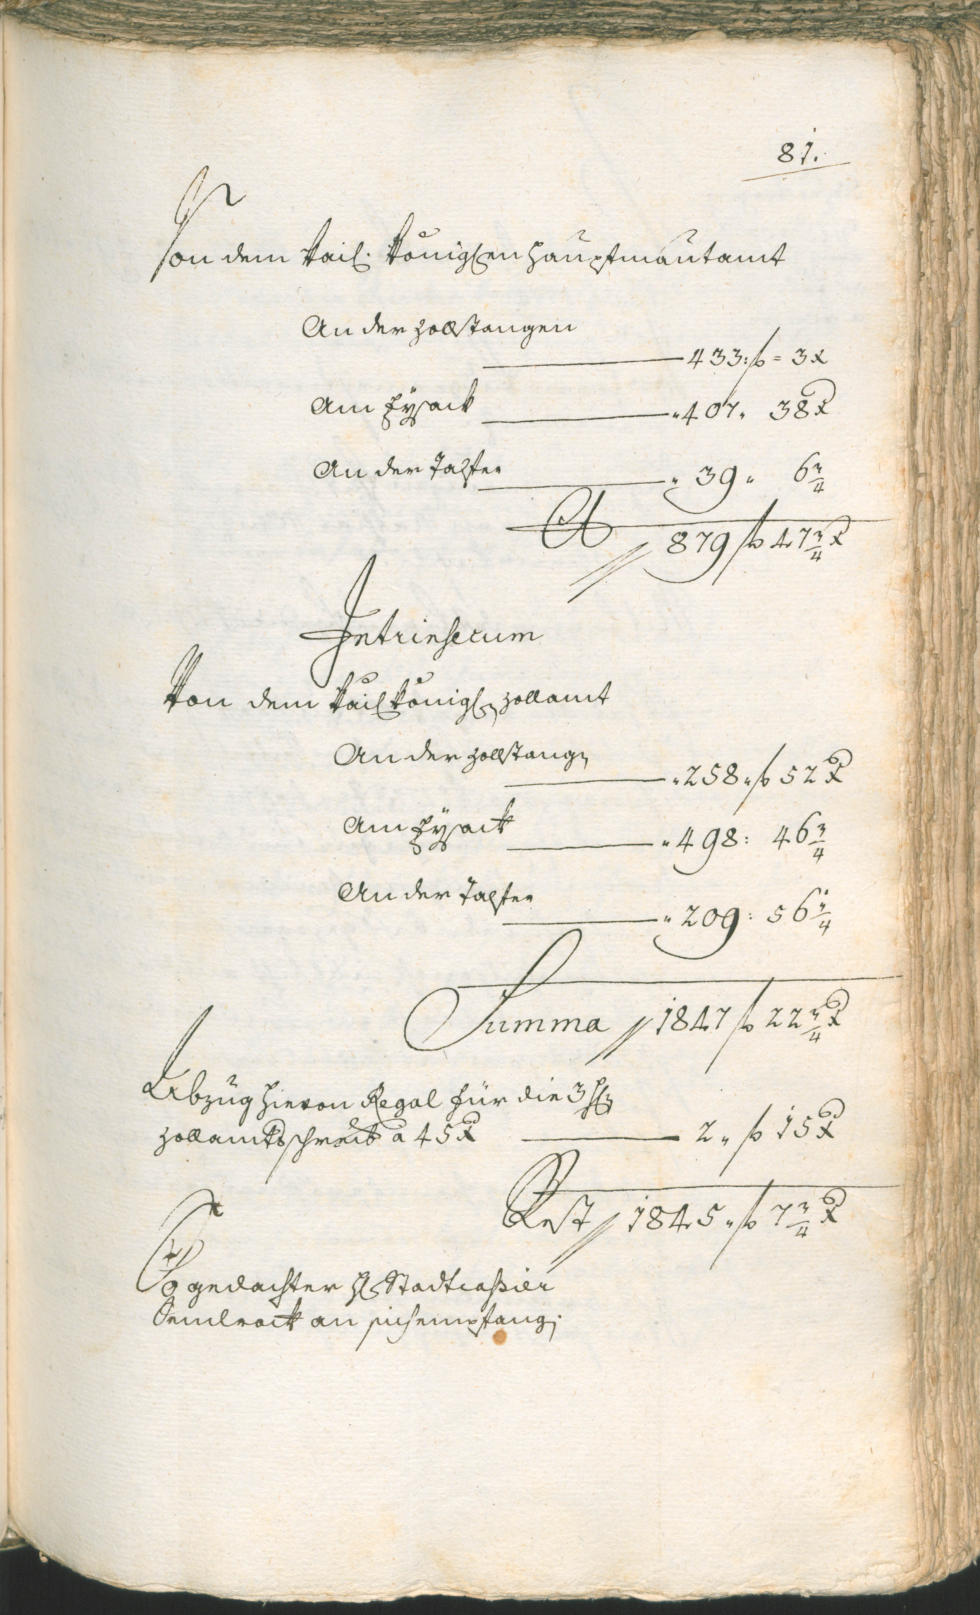 81.
Von dem Kaiß. Königlen Hauptmautamt
An der Zollstangen
433: f = 3 x
Am Eÿsack
" 407 " 38 x
An der Talfer
" 39 " 6 3/4
879 f 47 3/4 x
Intrinsecum
Von dem Kaiß Königl Zollamt
An der Zollstang
" 258 " f 52 x
Am Eÿsack
" 498 : 46 3/4
An der Talfer
" 209 : 56 1/4
Summa 1847 f 22 3/4 x
Abzug hievon Regal für die 3 H
Zollamtsschreib a 45 x 2 " f 15 x
Rest 1845 " f 7 3/4 x
So gedachter H Stadtcaßier
an sich empfang